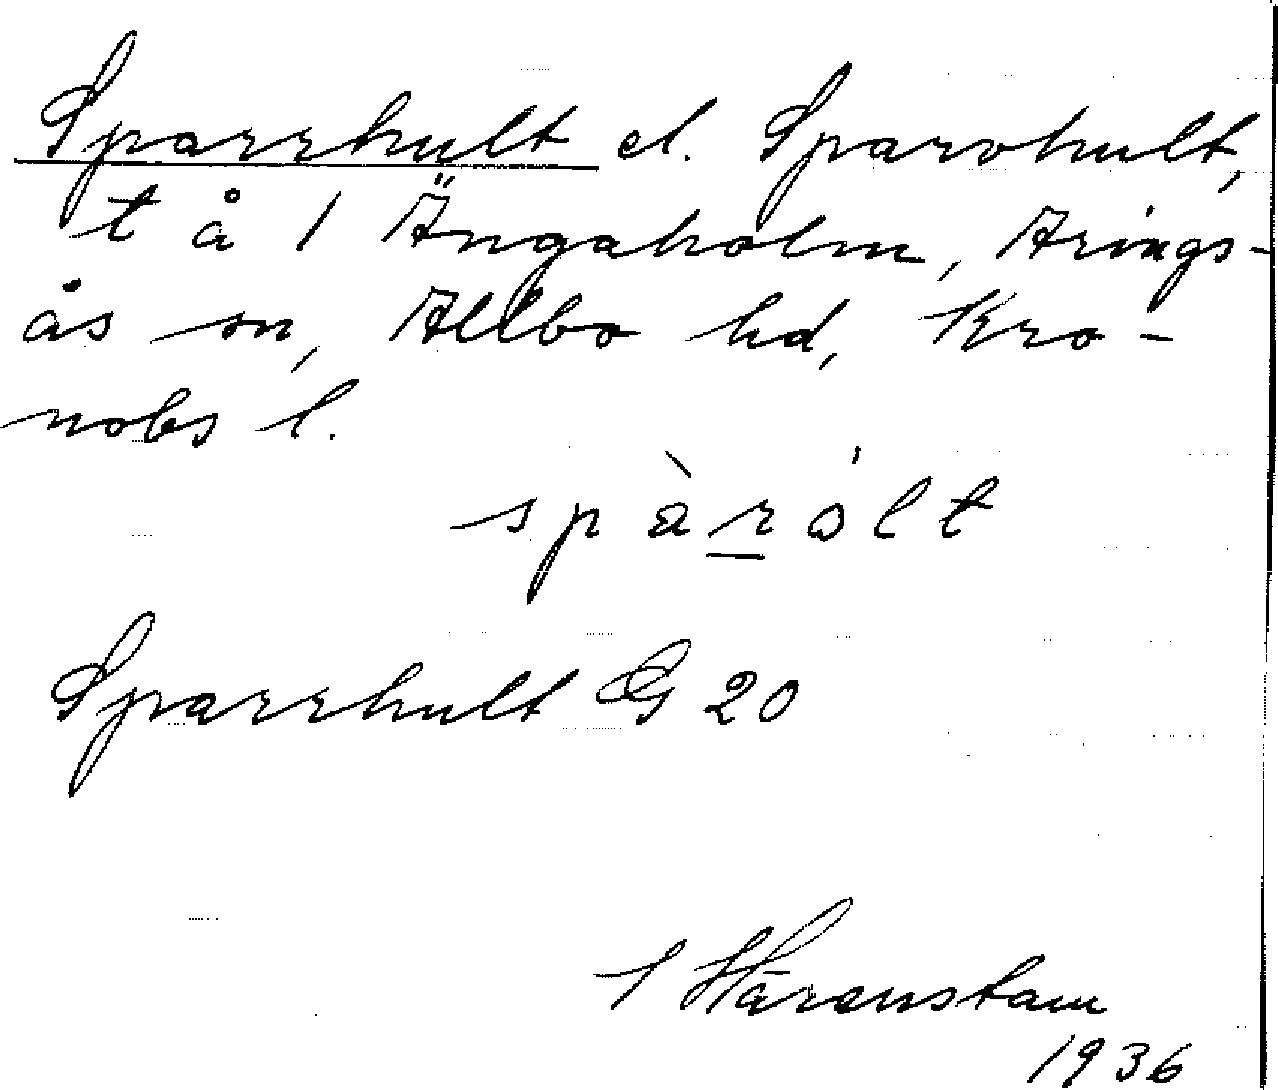 Sparrhult el. Sparvhult,
t å 1 Ängaholm, Arings-
ås sn, Allbo hd, Kro-
nobs l.
spàrólt
Sparrhult G 20
I Härenstam
1936